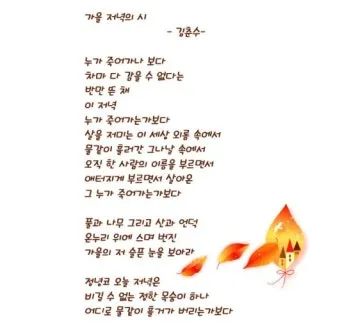 가을 저녁의 시
- 김춘수-
누가 죽어가나 보다
차마 다 감을 수 없다는
반만 뜬 채
이 저녁
누가 죽어가는가보다
살을 저미는 이 세상 외롬 속에서
물같이 흘러간 그나날 속에서
오직 한 사람의 이름을 부르면서
애터지게 부르면서 살아온
그 누가 죽어가는가보다
풀과 나무 그리고 산과 언덕
온누리 위에 스며 번진
가을의 저 슬픈 눈을 보아라
정녕코 오늘 저녁은
비길 수 없는 정한 목숨이 하나
어디로 물같이 흘러가 버리는가보다